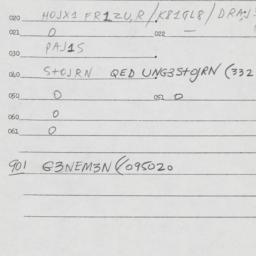 020 HOJX1 FR1ZU,R/K81GL8/DRAJ
021 0 022 —
030 PAJ1S
040 S+OJRN QED UNG3S+OJRN (332
050 0 051 0
060 0
061 0
901 G3NEM3N((095020